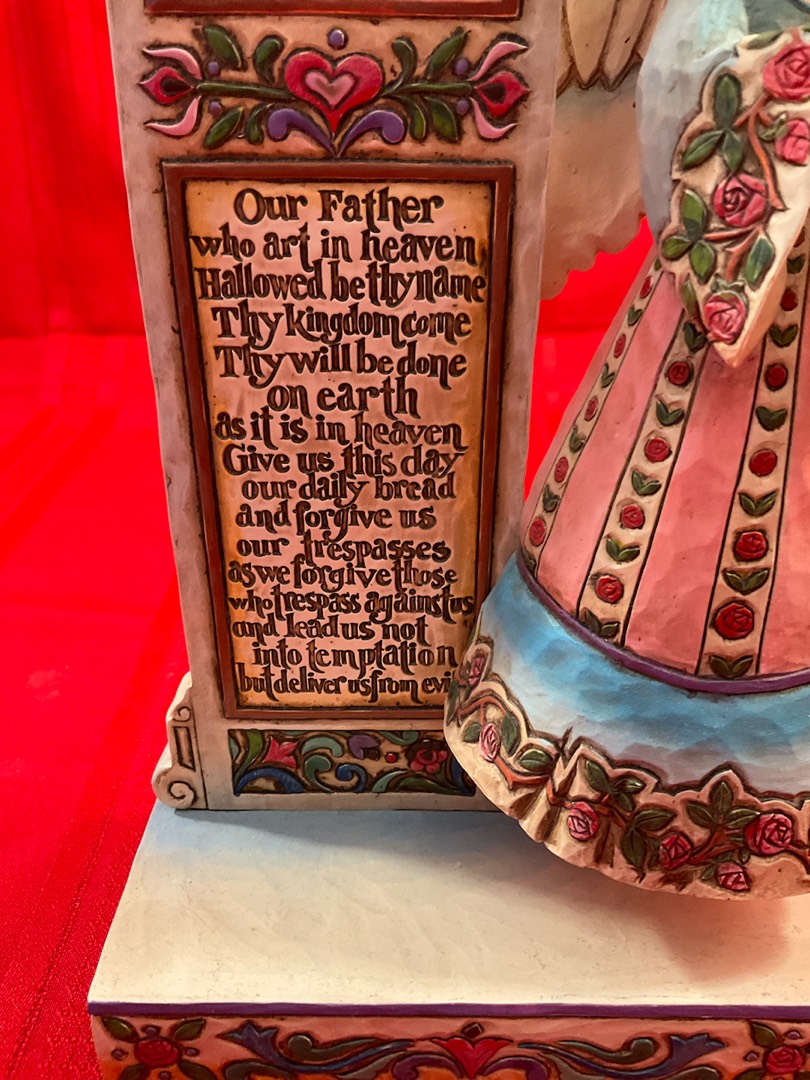 Our Father
who art in heaven
Hallowed be thy name
Thy kingdom come
Thy will be done
on earth
as it is in heaven
Give us this day
our daily bread
and forgive us
our trespasses
as we forgive those
who trespass against us
and lead us not
into temptation
but deliver us from evil